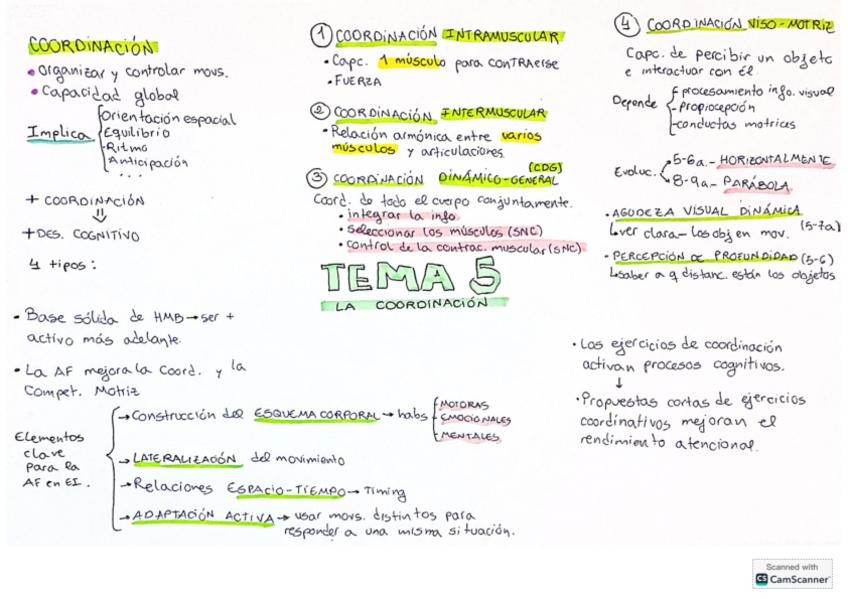 COORDINACIÓN
• Organizar y controlar movs.
• Capacidad global
Implica
Orientación espacial
-Equilibrio
-Ritmo
-Anticipación
...
+ COORDINACIÓN
⇓
+DES. COGNITIVO
4 tipos:
① COORDINACIÓN INTRAMUSCULAR
• Capc. 1 músculo para contraerse
• FUERZA
② COORDINACIÓN INTERMUSCULAR
• Relación armónica entre varios
músculos y articulaciones.
(CDG)
③ COORDINACIÓN DINÁMICO-GENERAL
Coord. de todo el cuerpo conjuntamente.
• integrar la info.
• seleccionar los músculos (SNC)
• control de la contrac. muscular (SNC)
TEMA 5
LA COORDINACIÓN
4 COORDINACIÓN VISO-MOTRIZ
Capc. de percibir un objeto
e interactuar con él.
Depende
- procesamiento info. visual
- propiocepción
- conductas motrices
Evoluc.
5-6a.- HORIZONTALMENTE
8-9a.- PARÁBOLA
• AGUDEZA VISUAL DINÁMICA
↳ver clara- los obj en mov. (5-7a)
• PERCEPCIÓN DE PROFUNDIDAD (5-6)
↳saber a q distanc. están los objetos
• Base sólida de HMB→ser +
activo más adelante.
• La AF mejora la Coord. y la
Compet. Motriz
Elementos
clave
para la
AF en EI.
→Construcción del ESQUEMA CORPORAL→habs
-MOTORAS
-EMOCIONALES
-MENTALES
→LATERALIZACIÓN del movimiento
→Relaciones ESPACIO-TIEMPO→Timing
→ADAPTACIÓN ACTIVA→usar movs. distintos para
responder a una misma situación.
• Los ejercicios de coordinación
activan procesos cognitivos.
↓
• Propuestas cortas de ejercicios
coordinativos mejoran el
rendimiento atencional.
Scanned with
CS CamScanner